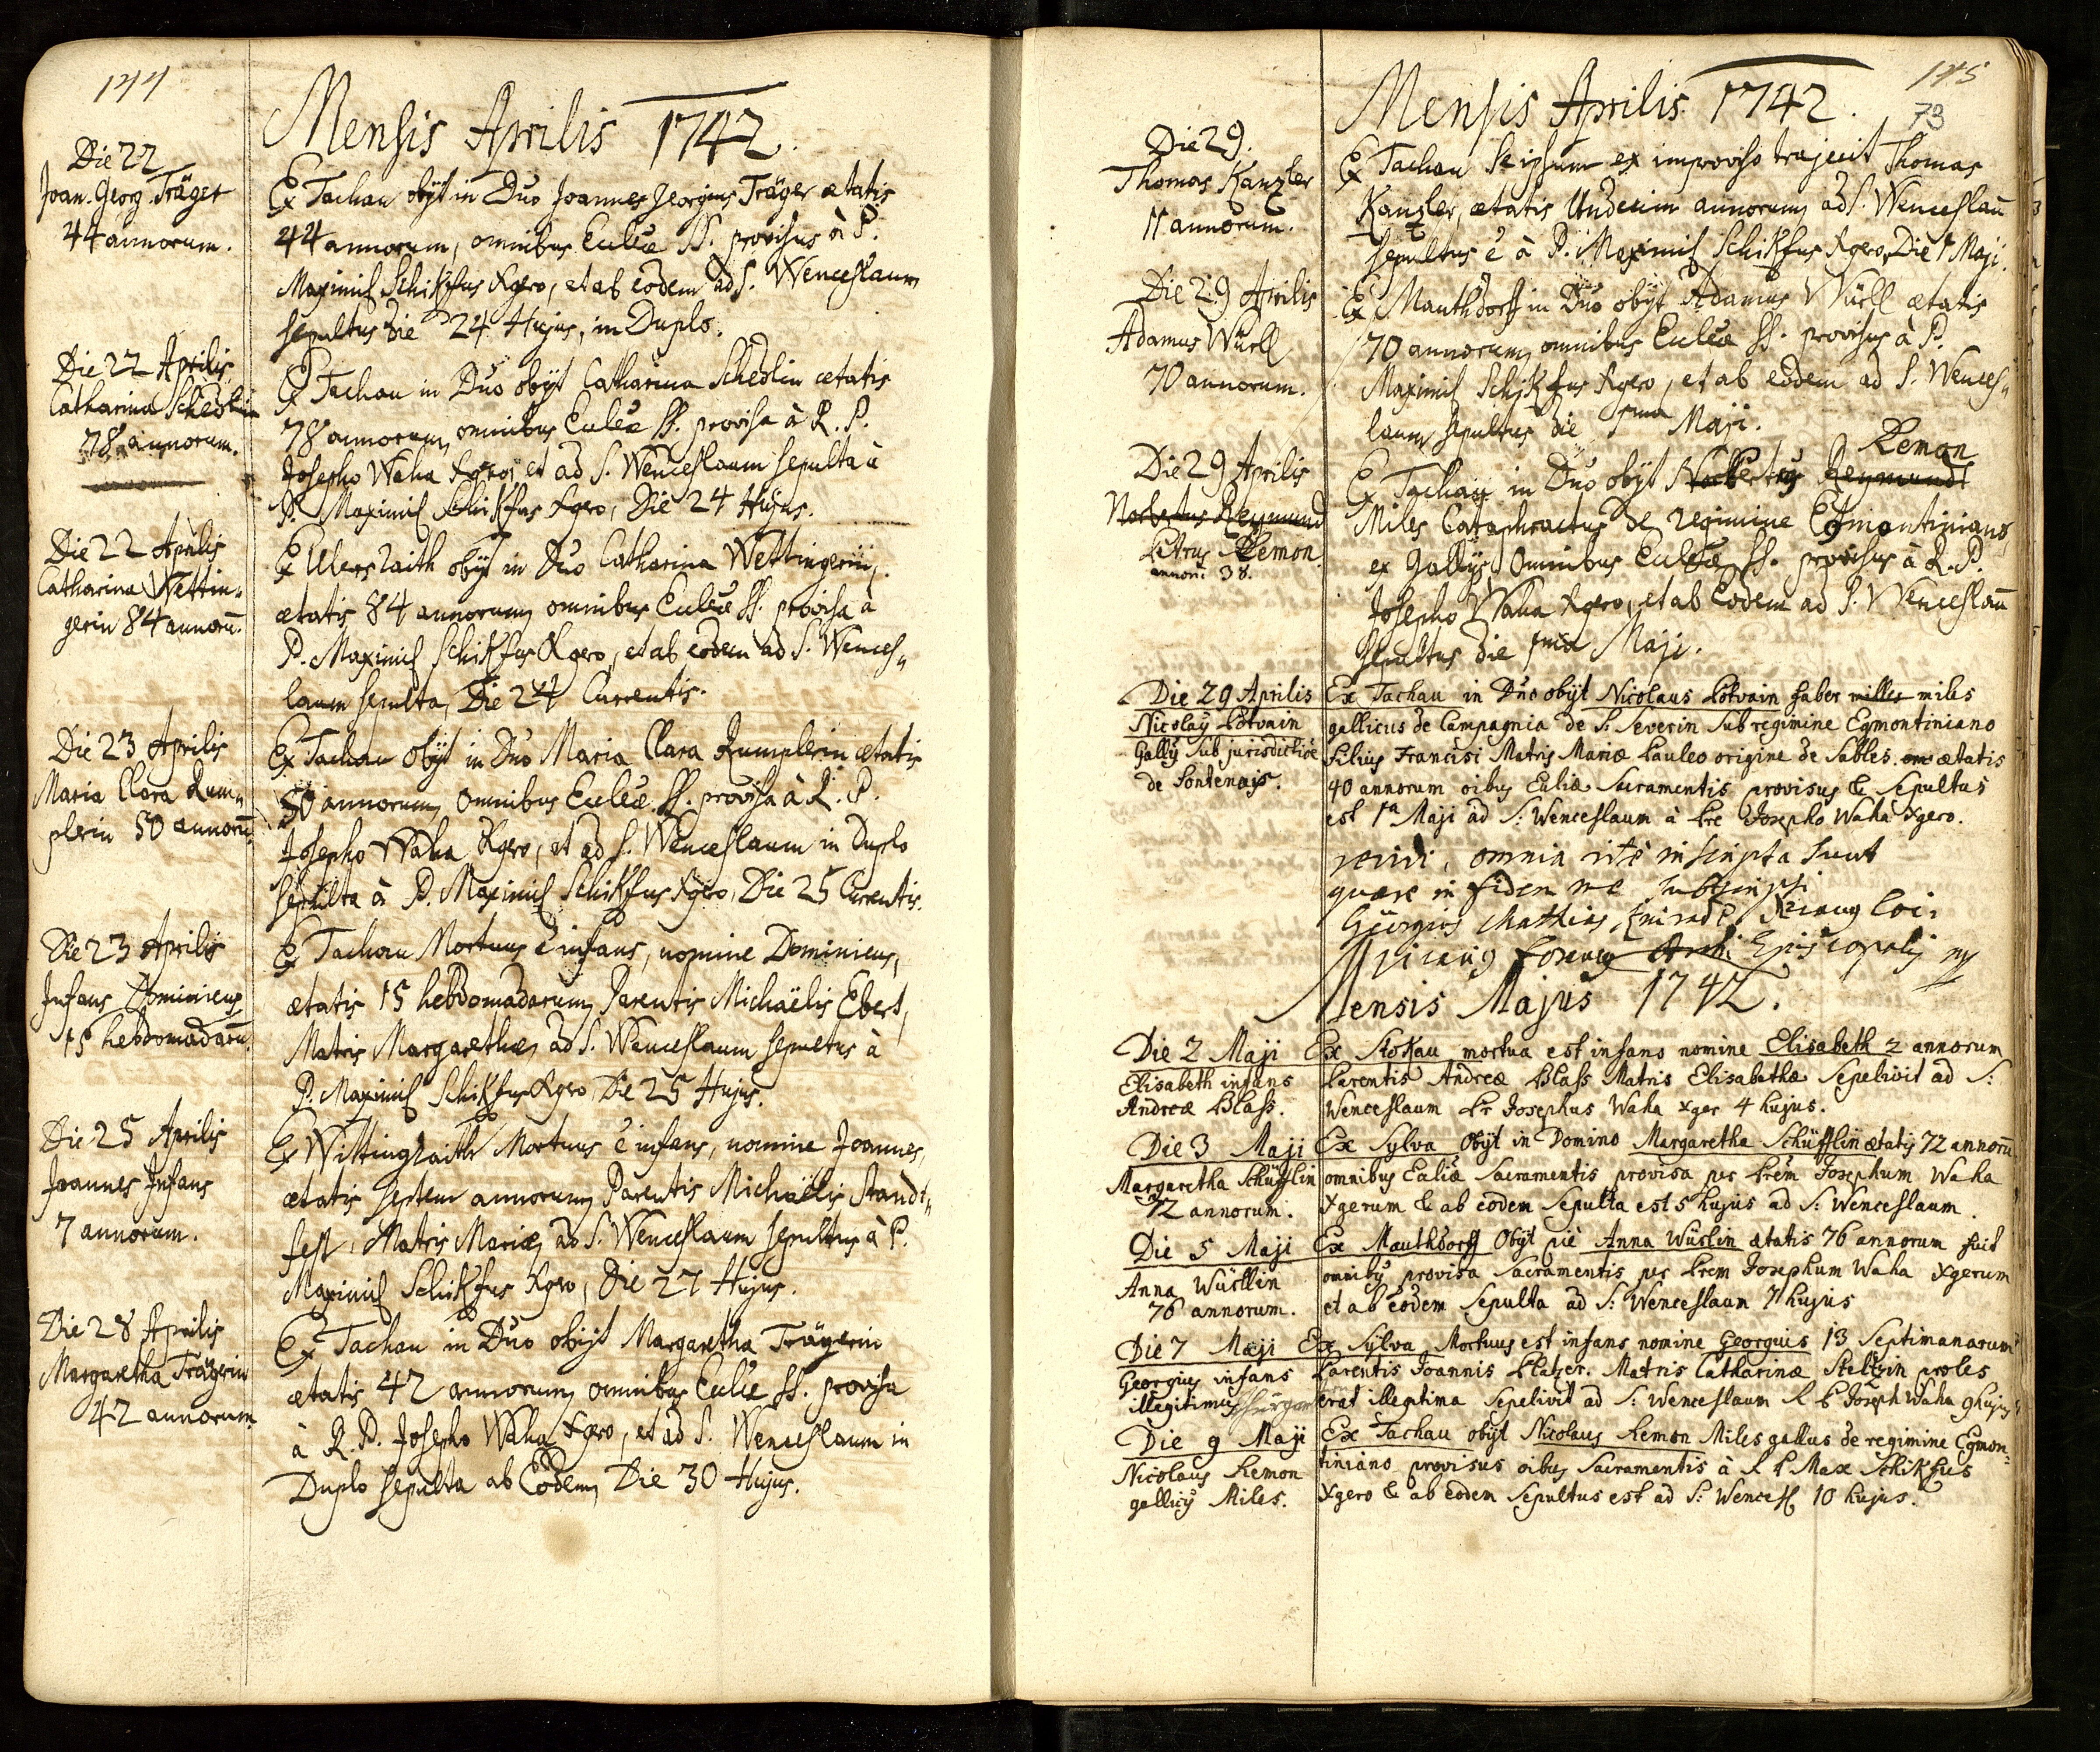 144
Mensis Aprilis 1742.
Die 22
Joan. Georg Träger
44 annorum.
Ex Tachau obijt in Dno Joannes Georgius Träger ætatis
44 annorum, omnibus Eccleæ SS. provisus à P.
Maximil Schikfus Xgero, et ab eodem ad S. Wenceslaum
sepultus die 24 Hujus, in Duplo.
Die 22 Aprilis
Catharina Schedlin
78 annorum.
Ex Tachau in Dno obijt Catharina Schedlin ætatis
78 annorum, omnibus Eccleæ SS. provisa à R. P.
Josepho Waha Xgero, et ad S. Wenceslaum sepulta à
P. Maximil Schikfus Xgero, Die 24 Hujus.
Die 22 Aprilis
Catharina Wettin„
gerin 84 annorū.
Ex Ulerslaith obijt in Dno Catharina Wettingerin,
ætatis 84 annorum, omnibus Eccleæ SS. provisa à
P. Maximil Schikfus Xgero, et ab eodem ad S. Wences„
laum sepulta, Die 24 Currentis.
Die 23 Aprilis
Maria Clara Rum„
plerin 50 annorū.
Ex Tachau obijt in Dno Maria Clara Rumplerin ætatis
50 annorum, omnibus Eccleæ SS. provisa à R. P.
Josepho Waha Xgero, et ad S. Wenceslaum in Duplo
sepulta à P. Maximil Schikfus Xgero, Die 25 Curentis.
Die 23 Aprilis
Infans Dominicus
15 hebdomadarū.
Ex Tachau Mortuus ē infans, nomine Dominicus,
ætatis 15 hebdomadarum, Parentis Michaëlis Ebert,
Matris Margarethæ, ad S. Wenceslaum sepultus à
P. Maximil Schikfus Xgero Die 25 Hujus.
Die 25 Aprilis
Joannes Infans
7 annorum.
Ex Wittingraith Mortuus ē infans, nomine Joannes,
ætatis septem annorum, Parentis Michaëlis Standt„
fest, Matris Mariæ, ad S. Wenceslaum sepultus à P.
Maximil Schikfus Xgero, Die 27 Hujus.
Die 28 Aprilis
Margaretha Trägerin
42 annorum.
Ex Tachau in Dno obijt Margaretha Trägerin
ætatis 42 annorum, omnibus Eccleæ SS. provisa
à R. P. Josepho Waha Xgero, et ad S. Wenceslaum in
Duplo sepulta ab Eodem, Die 30 Hujus.
145
73
Mensis Aprilis 1742.
Die 29.
Thomas Kanzler
11 annorum.
Ex Tachau se ipsum ex improviso trajecit Thomas
Kanzler, ætatis Undecim annorum, ad S. Wenceslaū
sepultus ē à P. Maximil Schikfus Xgero, Die 1 Maji.
Die 29 Aprilis
Adamus Würll
70 annorum.
Ex Mauthdorff in Dno obijt Adamus Würll ætatis
70 annorum, omnibus Eccleæ SS. provisus à P.
Maximil Schikfus Xgero, et ab eodem ad S. Wences„
laum sepultus die 1ma Maji.
Die 29 Aprilis
Norbertus Reymund
Petrus Remon
annorū 38.
Remon
Ex Tachau in Dno obijt Norbertus Reymundt
Miles Cataphractus de regimine Egmontiniano,
ex Gallijs, Omnibus Eccleæ SS. provisus à R. P.
Josepho Waha Xgero, et ab Eodem ad S. Wenceslaū
sepultus die 1ma Maji.
Die 29 Aprilis
Nicolaÿ Potvain
Gallÿ sub jurisdictiōe
de Fontenais.
Ex Tachau in Dno obijt Nicolaus Potvain faber milles miles
gallicus de Campagnia de S: Severin sub regimine Egmontiniano
Filius Francisi Matris Mariæ Pauleo origine de Sables ætatis
40 annorum oibus Ecliæ Sacramentis provisus & sepultus
est 1a Maji ad S: Wenceslaum à Pre Josepho Waha Xgero.
revidi, omnia ritè inscripta sunt
quare in fidem me subscripsi
Georgius Mathias Vicariug loci
Vicariug Foraneg Archi Episcopalig mp
Mensis Majus 1742.
Die 2 Maji
Elisabeth infans
Andreæ Blass.
Ex Stokau mortua est infans nomine Elisabeth 2 annorum
Parentis Andreæ Blass Matris Elisabethæ Sepelivit ad S:
Wenceslaum Pr Josephus Waha xger 4 hujus.
Die 3 Maji
Margaretha Schüfflin
72 annorum.
Ex Sylva Obijt in Domino Margaretha Schüfflin ætatis 72 annorū
omnibus Ecliæ Sacramentis provisa per Prēm Josephum Waha
Xgerum & ab eodem sepulta est 5 hujus ad S: Wenceslaum.
Die 5 Maji
Anna Würllin
76 annorum.
Ex Mauthdorff Obijt piè Anna Würlin ætatis 76 annorum fuit
omnibÿ provisa Sacramentis per Prem Josephum Waha Xgerum
et ab eodem Sepulta ad S: Wenceslaum 7 hujus
Die 7 Maji
Georgius infans
illegitimus
Ex Sylva Mortuus est infans nomine Georgius 13 Septimanarum
Parentis Joannis Platzer. Matris Catharinæ Steltzin proles
erat illegitima Sepelivit ad S: Wenceslaum R P Joseph Waha 9 hujus
Die 9 Maji
Nicolaus Remon
gallicÿ Miles.
Ex Tachau obijt Nicolaus Remon Miles gallus de regimine Egmon„
tiniano provisus oibus Sacramentis à R P Max Schikfus
Xgero & ab eodem sepultus est ad S: Wencesl 10 hujus.